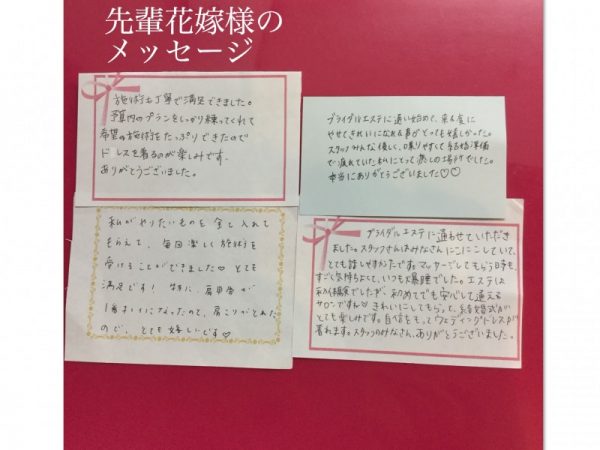 先輩花嫁様の
メッセージ
施術も丁寧で満足できました。
予算内のプランをしっかり練ってくれて
希望の施術をたっぷりできたので
ドレスを着るのが楽しみです。
ありがとうございました。
ブライダルエステに通い始めて、来る度に
やせてきれいになれる自分がとっても嬉しかった。
スタッフみんな優しく、喋りやすくて結婚準備
で疲れていた私にとって癒しの場所でした。
本当にありがとうございました♡♡
私がやりたいものを全て入れて
もらえて、毎回楽しく施術を
受けることができました♡とても
満足です!特に、肩甲骨が
1番キレイになったのと、肩こりがとれた
ので、とても嬉しいです♡
ブライダルエステに通わせていただき
ました。スタッフさんはみなさんにこにこしていて、
とても話しやすかったです。マッサージしてもらう日時も
すごく気持ちよくて、いつも爆睡でした。エステは
初体験でしたが、初めてでも安心して通える
サロンです。きれいにしてもらって、結婚式が
とても楽しみです。自信をもってウェディングドレスが
着れます。スタッフのみなさん、ありがとうございました。